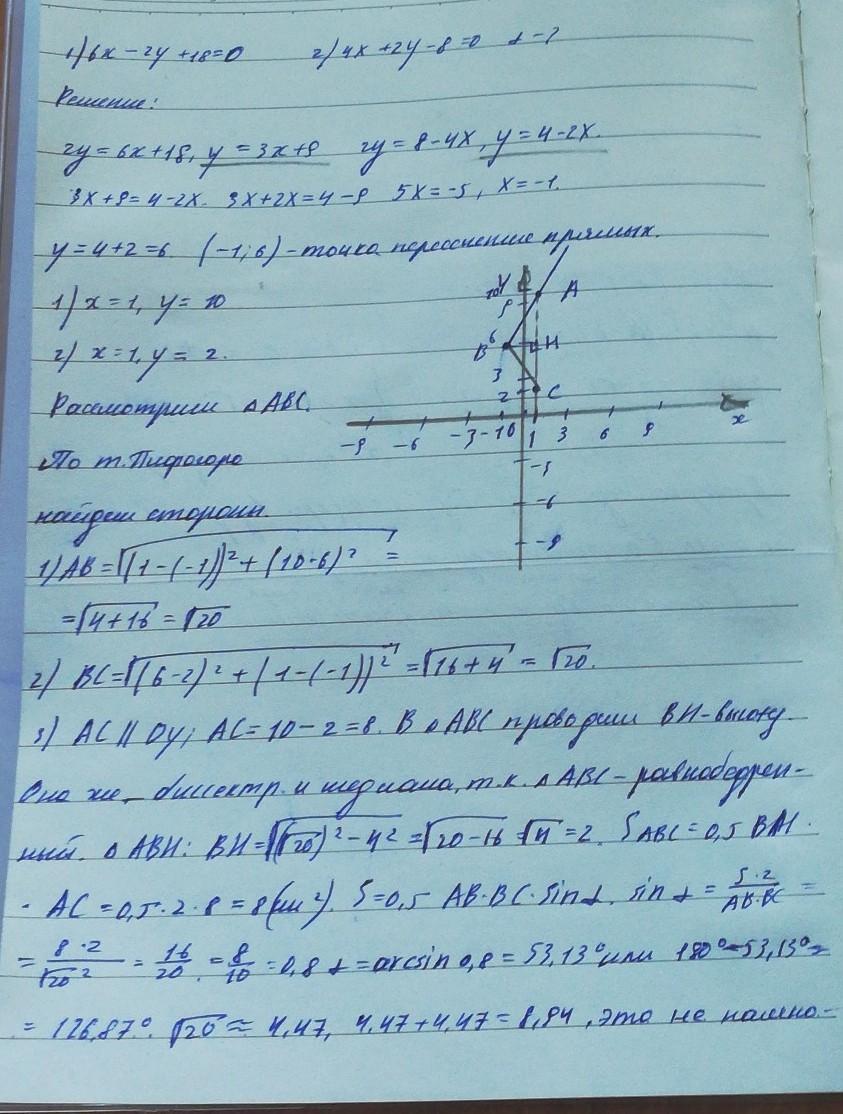 1) 6x – 2y + 18 = 0 2) 4x + 2y – 8 = 0 α – ?
Решение:
2y = 6x + 18, y = 3x + 9 2y = 8 – 4x, y = 4 – 2x.
3x + 9 = 4 – 2x. 3x + 2x = 4 – 9 5x = –5, x = –1.
y = 4 + 2 = 6. (–1; 6) – точка пересечение прямых.
1) x = 1, y = 10
2) x = 1, y = 2.
Рассмотрим △ABC.
По т. Пифагора
найдем стороны.
y
10
9
A
B
6
H
3
2
C
–9 –6 –3 –1 0 1 3 6 9 x
–3
–6
–9
1) AB = √((1 – (–1))² + (10 – 6)²) =
= √(4 + 16) = √20
2) BC = √((6 – 2)² + (1 – (–1))²) = √(16 + 4) = √20.
3) AC || Oy; AC = 10 – 2 = 8. В △ABC проводим BH – высоту.
Она же – биссектр. и медиана, т.к. △ABC – равнобедрен-
ный. △ABH: BH = √((√20)² – 4²) = √(20 – 16) = √4 = 2. S ABC = 0,5 BH ·
· AC = 0,5 · 2 · 8 = 8 (см²). S = 0,5 AB · BC · sin α. sin α = S · 2 / AB · BC =
= 8 · 2 / √20² = 16/20 = 8/10 = 0,8 α = arcsin 0,8 = 53,13° или 180° – 53,13° =
= 126,87°. √20 ≈ 4,47, 4,47 + 4,47 = 8,94, это не намно-